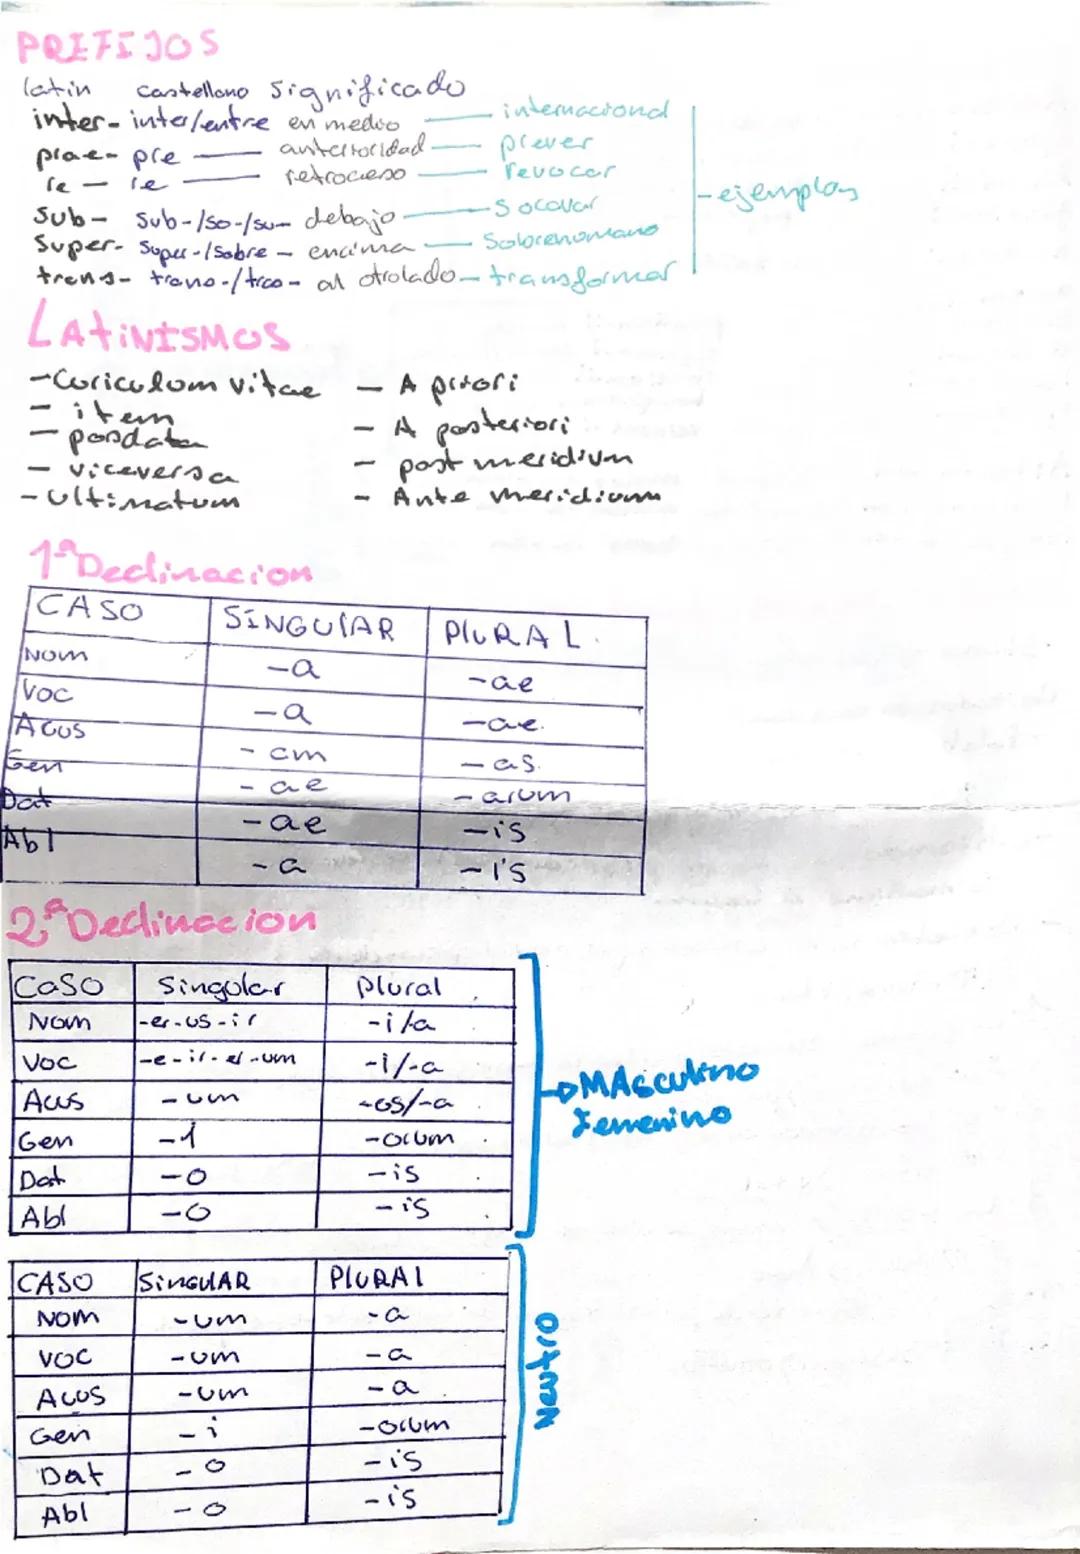 PREFIJOS
latin castellano significado
inter- inter/entre en medio — internacional
prae- pre — anterioridad — prever
re — re — retroceso — revocar
sub - sub-/so-/su- debajo — socavar
Super- super-/sobre - encima — Sobrenomano
trans- trans-/tras- al otrolado - transformar
- ejemplos
LATINISMOS
- Curiculom vitae
- item
- posdata
- viceversa
- ultimatum
- A priori
- A posteriori
- post meridium
- Ante meridium
1ª Declinacion
CASO SINGULAR PlURAL
NOM -a -ae
VOC -a -ae
Acus -am -as
Gen -ae -arum
Dat -ae -is
Abl -a -is
2ª Declinacion
CaSO Singular Plural
Nom -er-us-ir -i/a
VOC -e-ir-er-um -i/-a
Acus -um -os/-a
Gen -i -orum
Dat -o -is
Abl -o -is
MAsculino
Femenino
CASO SINGULAR PlURAl
NOM -um -a
VOC -um -a
Acus -um -a
Gen -i -orum
Dat -o -is
Abl -o -is
Neutro